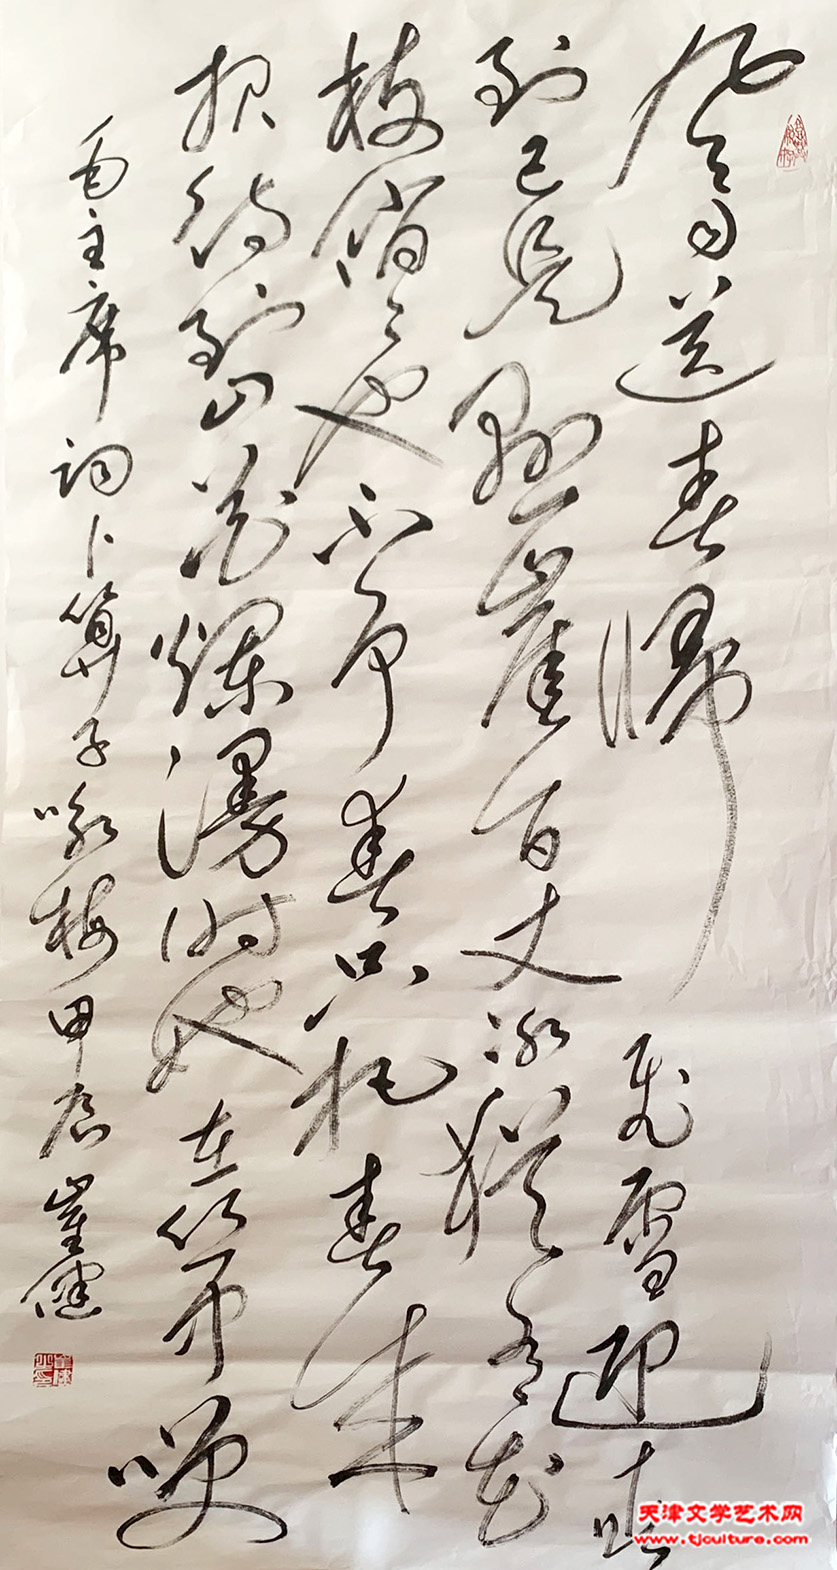 風雨送春歸飛雪迎春
到已是懸崖百丈冰猶有花
枝俏俏也不爭春只把春来
報待到山花爛漫時她在叢中咲
毛主席詞卜算子咏梅甲辰崔健
天津文学艺术网
www.tjculture.com